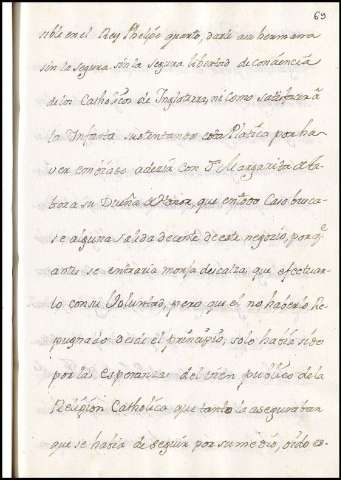 69
sible en el Rey Phelipe quarto, darle a su hermana
sin la segura sin la segura libertad de conciencia
de los Catholicos de Inglaterra, ni como satisfacer a
la Infanta sustentando esta Platica por ha-
ver embiado a dezir con Dª Margarida
su Dueña de Honor, que en todo Caso busca-
se alguna salida decente de este negozio, por q.
antes se entraria monja descalza, que efectuar-
lo con su Voluntad, pero que el no haberlo Re-
pugnado desde el principio, solo habia sido
por la esperanza del bien publico de la
Religion Catholica que tanto la aseguraban
que se habia de seguir por su medio, oido es-